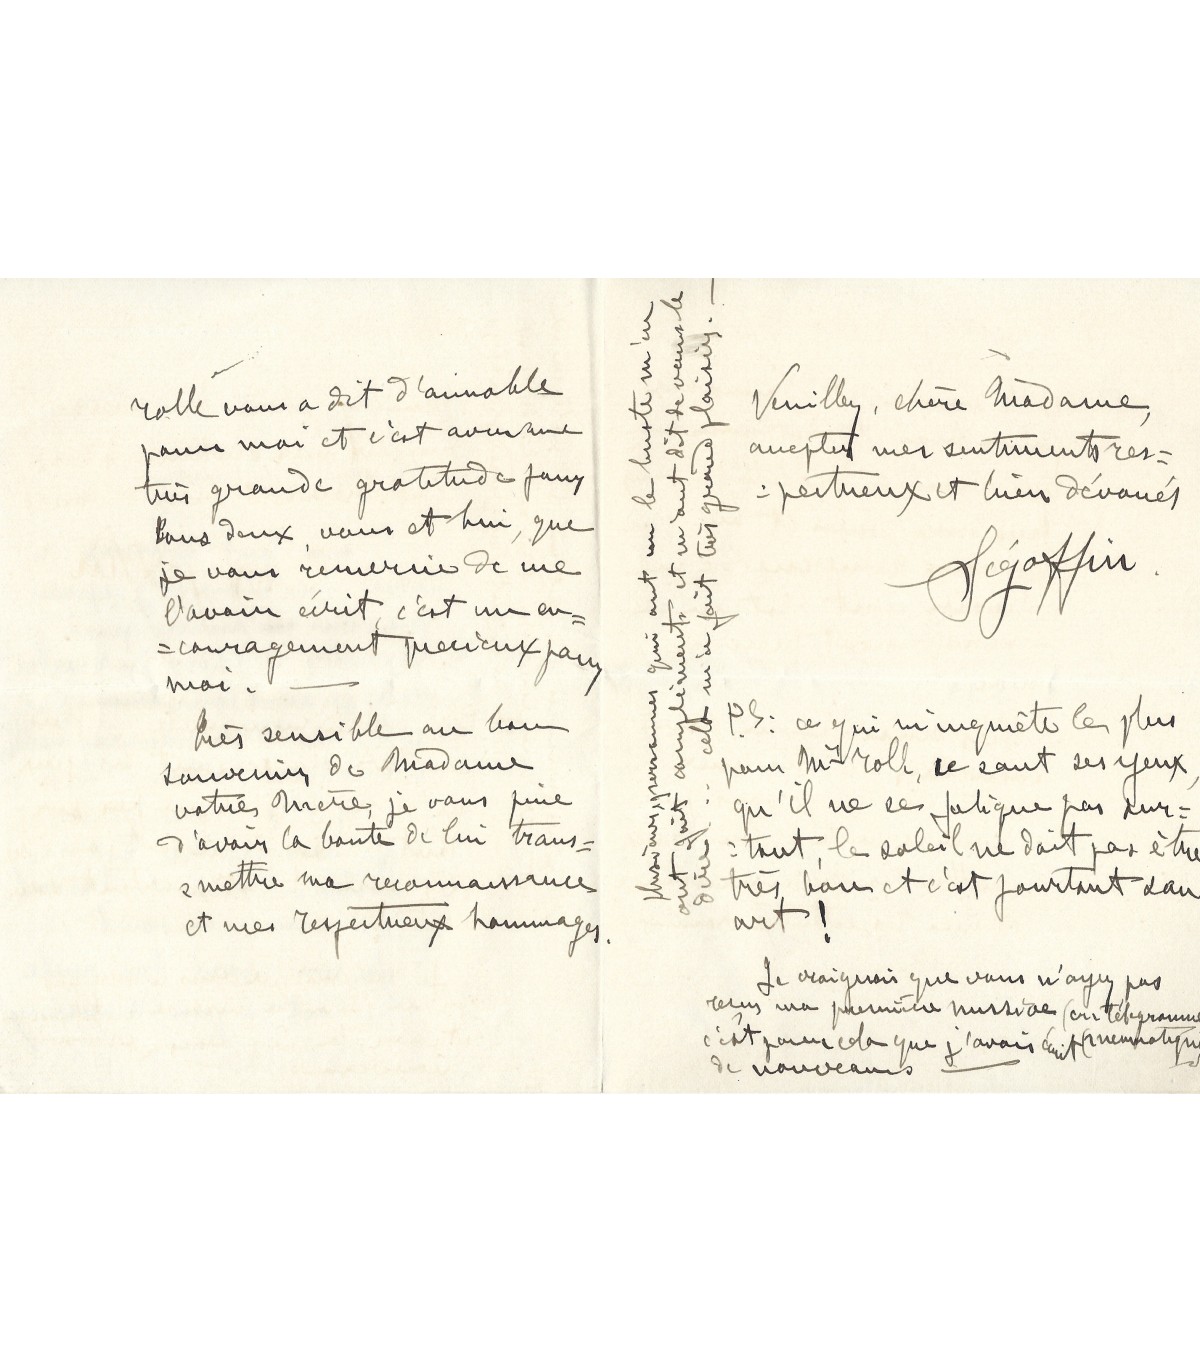 rolle vous a dit d'aimable
pour moi et c'est avec une
très grande gratitude pour
tous deux, vous et lui, que
je vous remercie de me
l'avoir écrit, c'est un en=
=couragement précieux pour
moi. —
Très sensible au bon
souvenir de Madame
votre Mère, je vous prie
d'avoir la bonté de lui trans=
=mettre ma reconnaissance
et mes respectueux hommages.
Plusieurs personnes qui ont vu le buste m'en
ont fait compliments et m'ont dit de vous le
dire : cela m'a fait très grand plaisir. —
Veuillez, chère Madame,
accepter mes sentiments res=
=pectueux et bien dévoués
Ségoffin.
P.S: ce qui m'inquiète le plus
pour Mr Roll, ce sont ses yeux,
qu'il ne se fatigue pas sur=
=tout, le soleil ne doit pas être
très bon et c'est pourtant son
art !
Je craignais que vous n'ayez pas
reçu ma première missive (un télégramme
c'est pour cela que j'avais écrit (pneumatique
de nouveau —